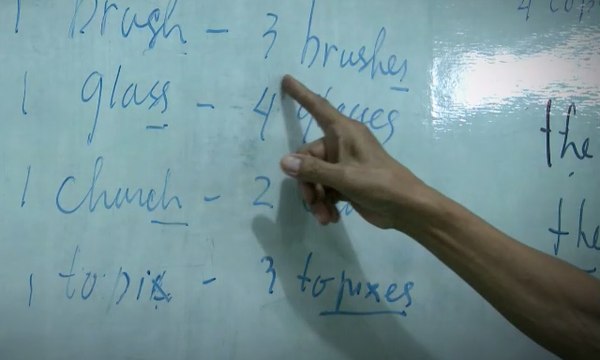 1 brush - 3 brushes
1 glass - 4
1 church - 2
1 topix - 3 topixes
4 cop
the
the